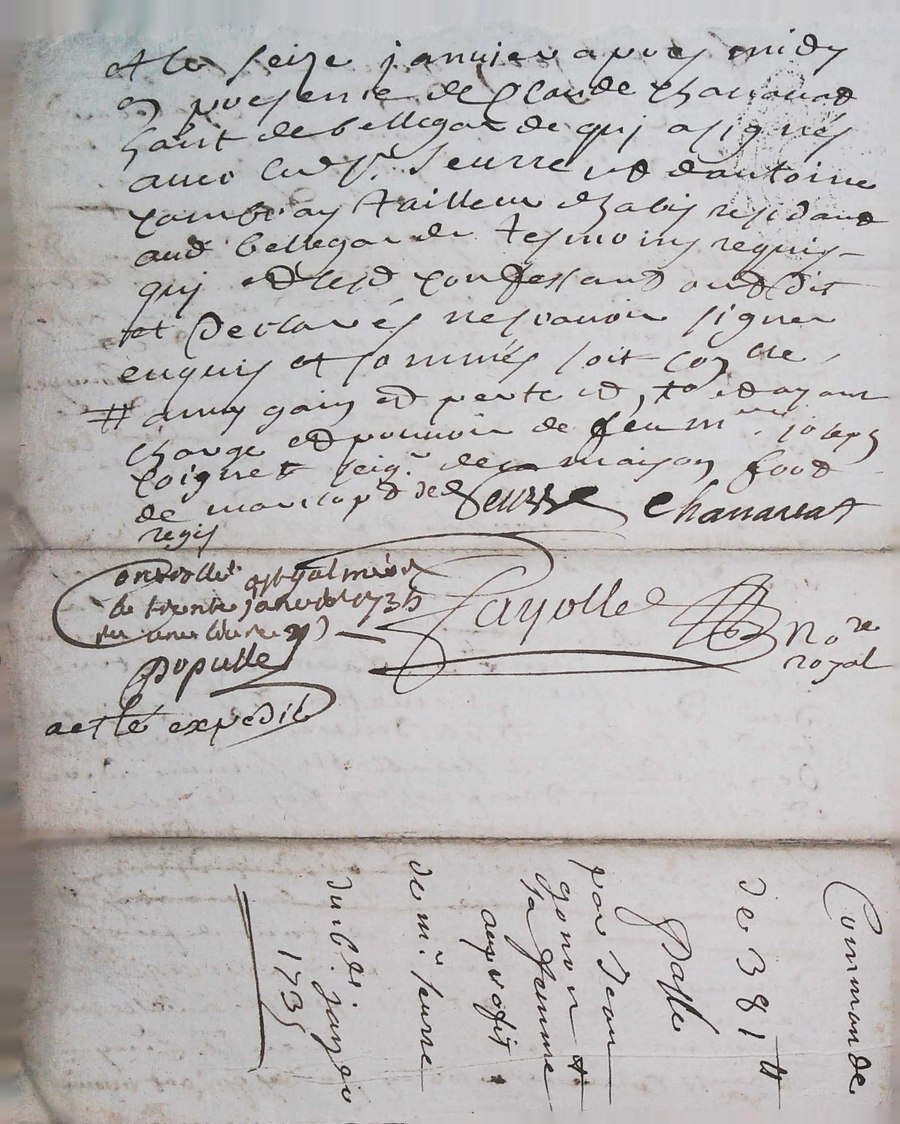 et le seize janvier apres midy
en presence de Claude Chavanat
hant de bellegarde qui a signés
avec led sr. Seurre et d'antoine
Cambray tailleur d'habis residant
aud bellegarde tesmoins requis
qui et lesd confessant ont dit
et declarés ne scavoir signer
enquis et sommés soit con lle
# a mny gain et perte et, to et ayant
charge et pouvoir de feu mre. joseph
Coignet seigr. de la maison fort
de marcoux de
regis
Seurre Chavanat
Controllé a St galmier
le trente janvier 1735
Populle
Fayolle
Nore
royal
a etté expedié
Commande
de 381 ₶
passé
par Jean
gonon +
sa femme
au profit
de mr. seurre
du 16e. janvie
1735